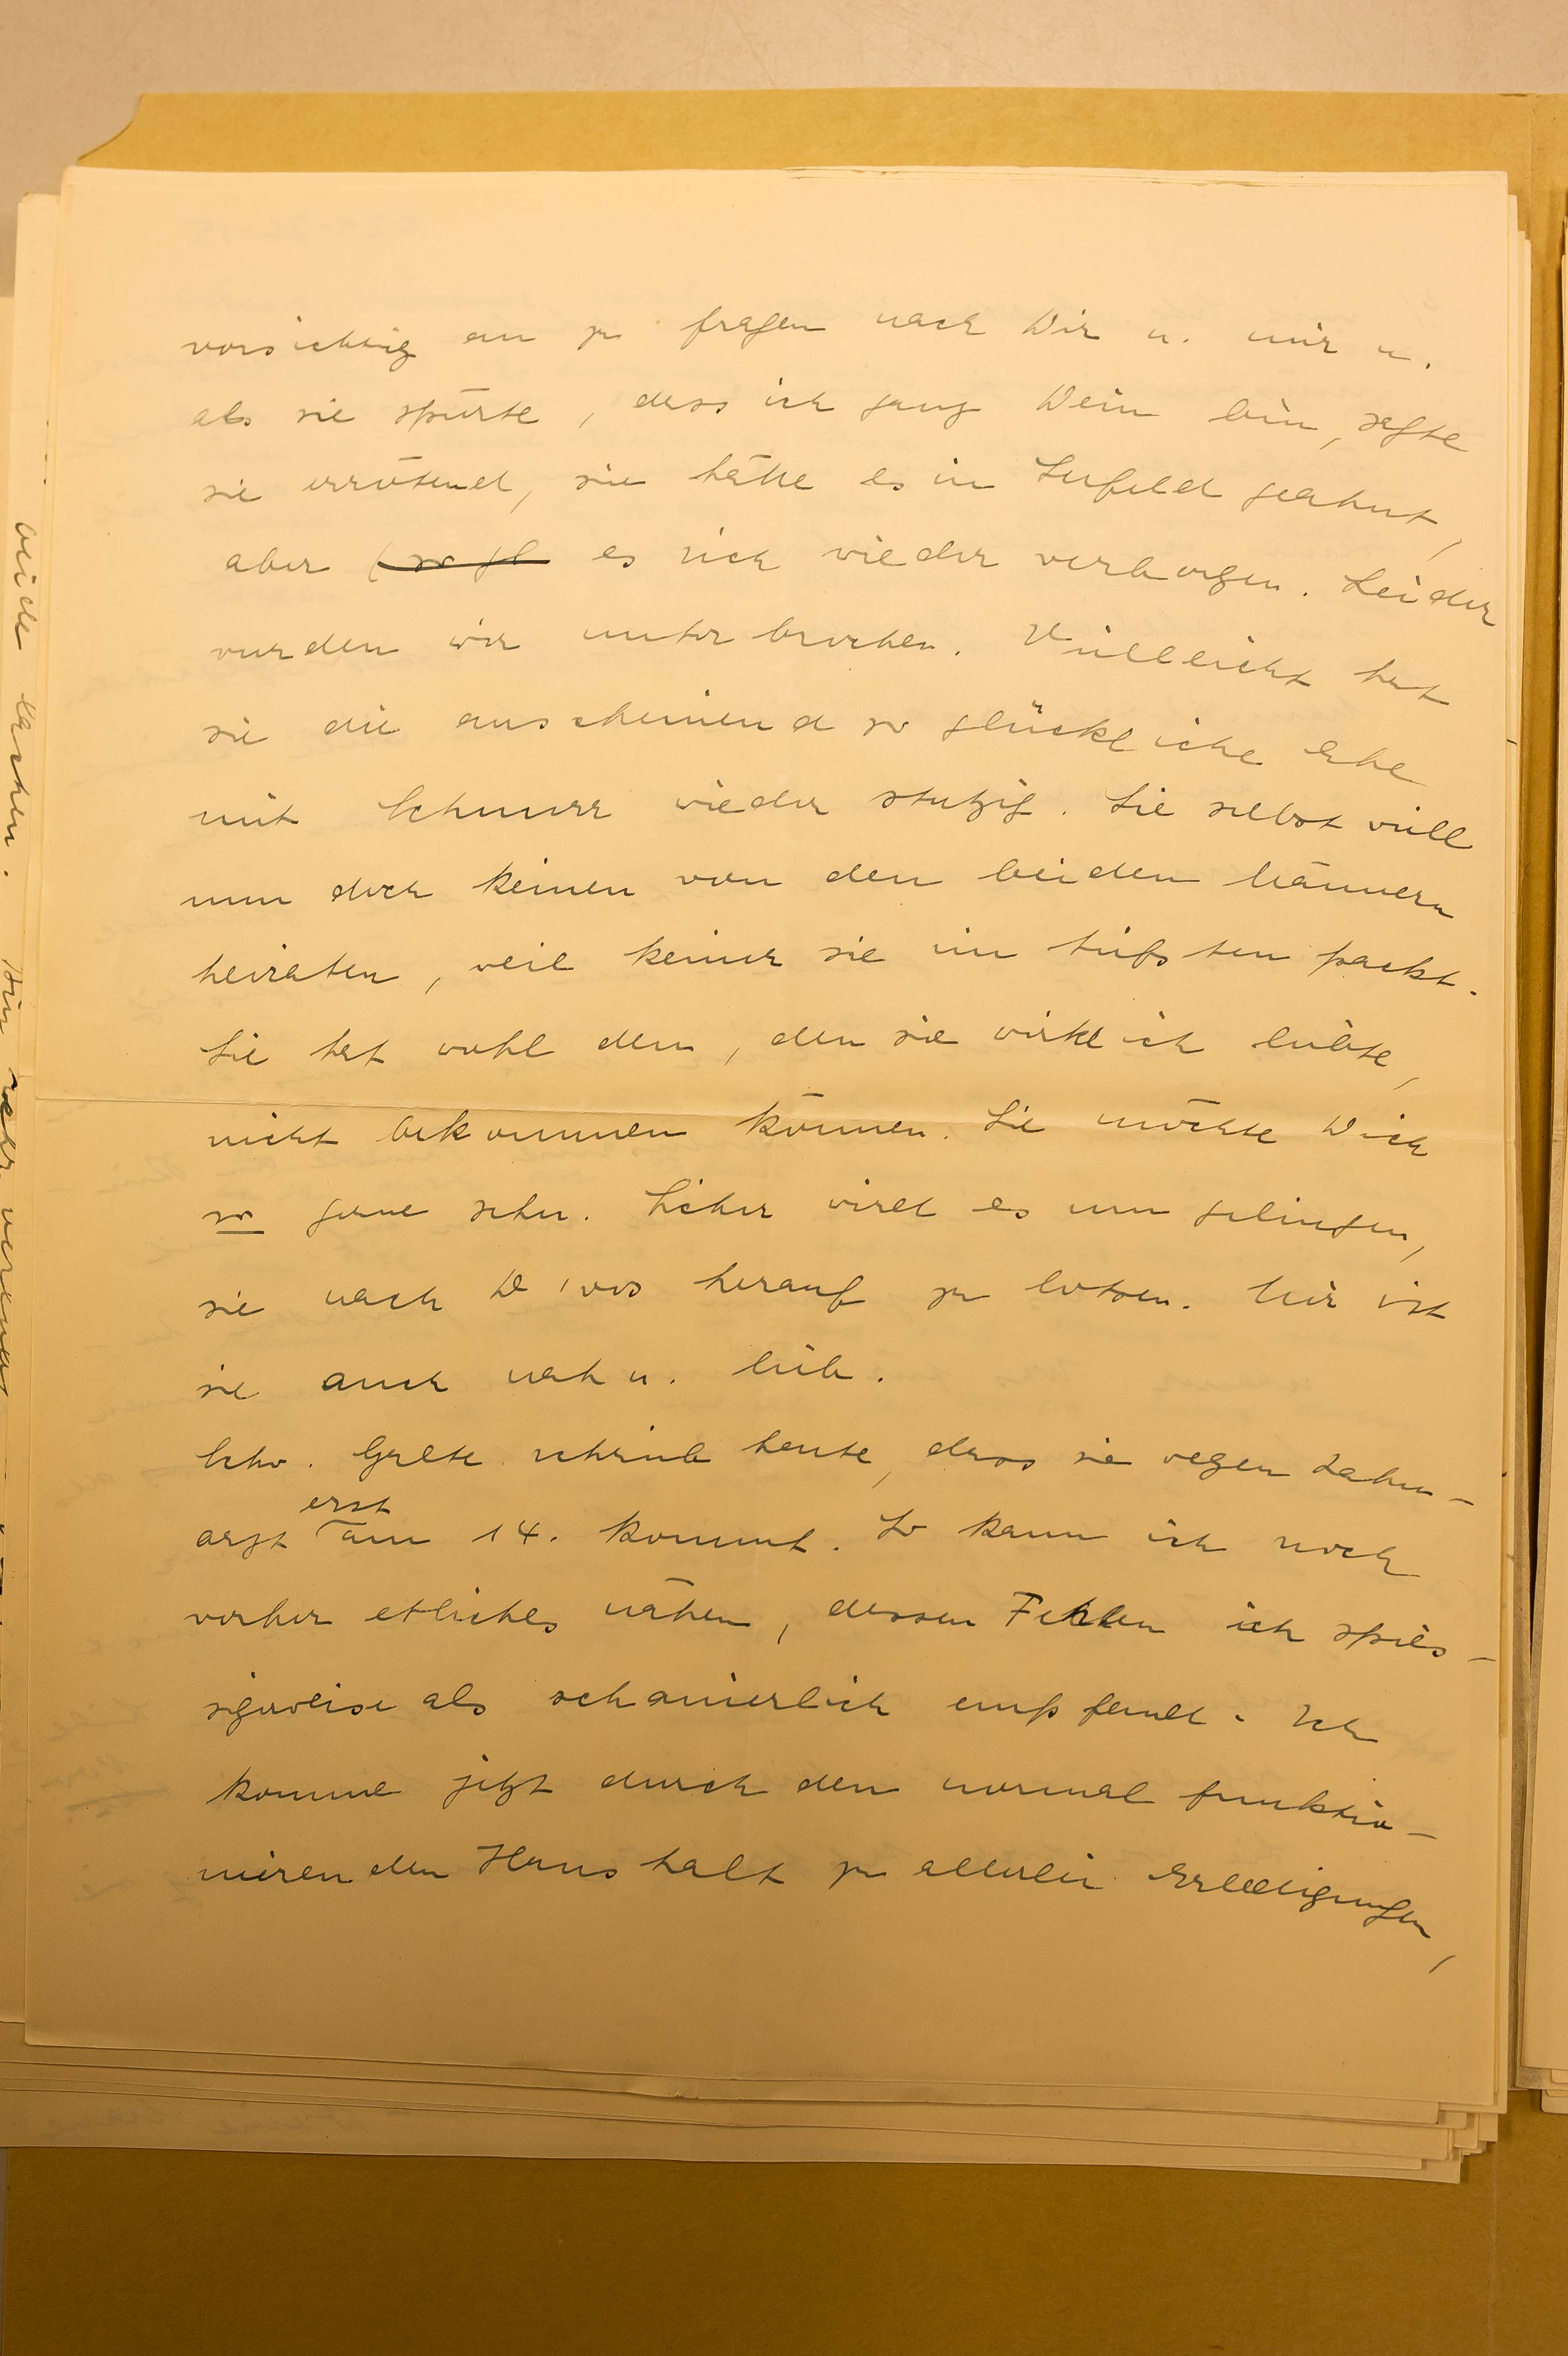 vorsichtig an zu fragen nach Dir u. mir u.
als sie spürte, dass ich ganz Dein bin, sagte
sie errötend, sie hätte es in Seefeld geahnt,
aber es sich wieder verborgen. Leider
wurden wir unterbrochen. Vielleicht hat
sie die anscheinend so glückliche Ehe
mit Schnurr wieder stutzig. Sie selbst will
nun doch keinen von den beiden Männern
heiraten, weil keiner sie im tiefsten packt.
Sie hat wohl den, den sie wirklich liebte,
nicht bekommen können. Sie möchte Dich
so gerne sehn. Sicher wird es nun gelingen,
sie nach Davos herauf zu lotsen. Mir ist
sie auch nah u. lieb.
Schw. Grete schrieb heute, dass sie wegen Zahn-
arzt erst am 14. kommt. So kann ich noch
vorher etliches nähen, dessen Fehlen ich spies-
sigerweise als schanierlich empfand. Ich
komme jetzt durch den normal funktio-
nierenden Haushalt zu allerlei Erledigungen,
beide lachen.